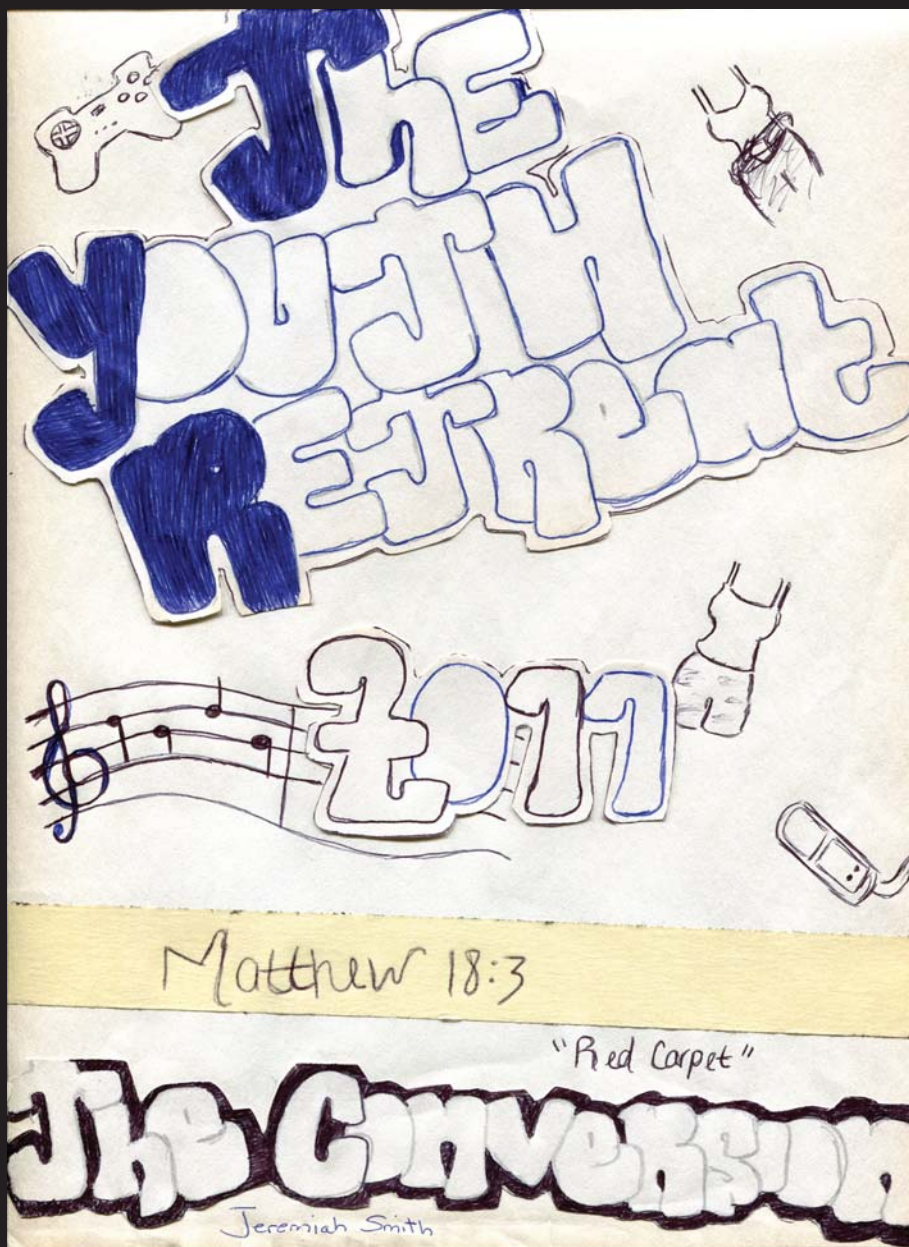 The
YOUTH
RETReat
2011
Matthew 18:3
"Red Carpet"
The Conversion
Jeremiah Smith